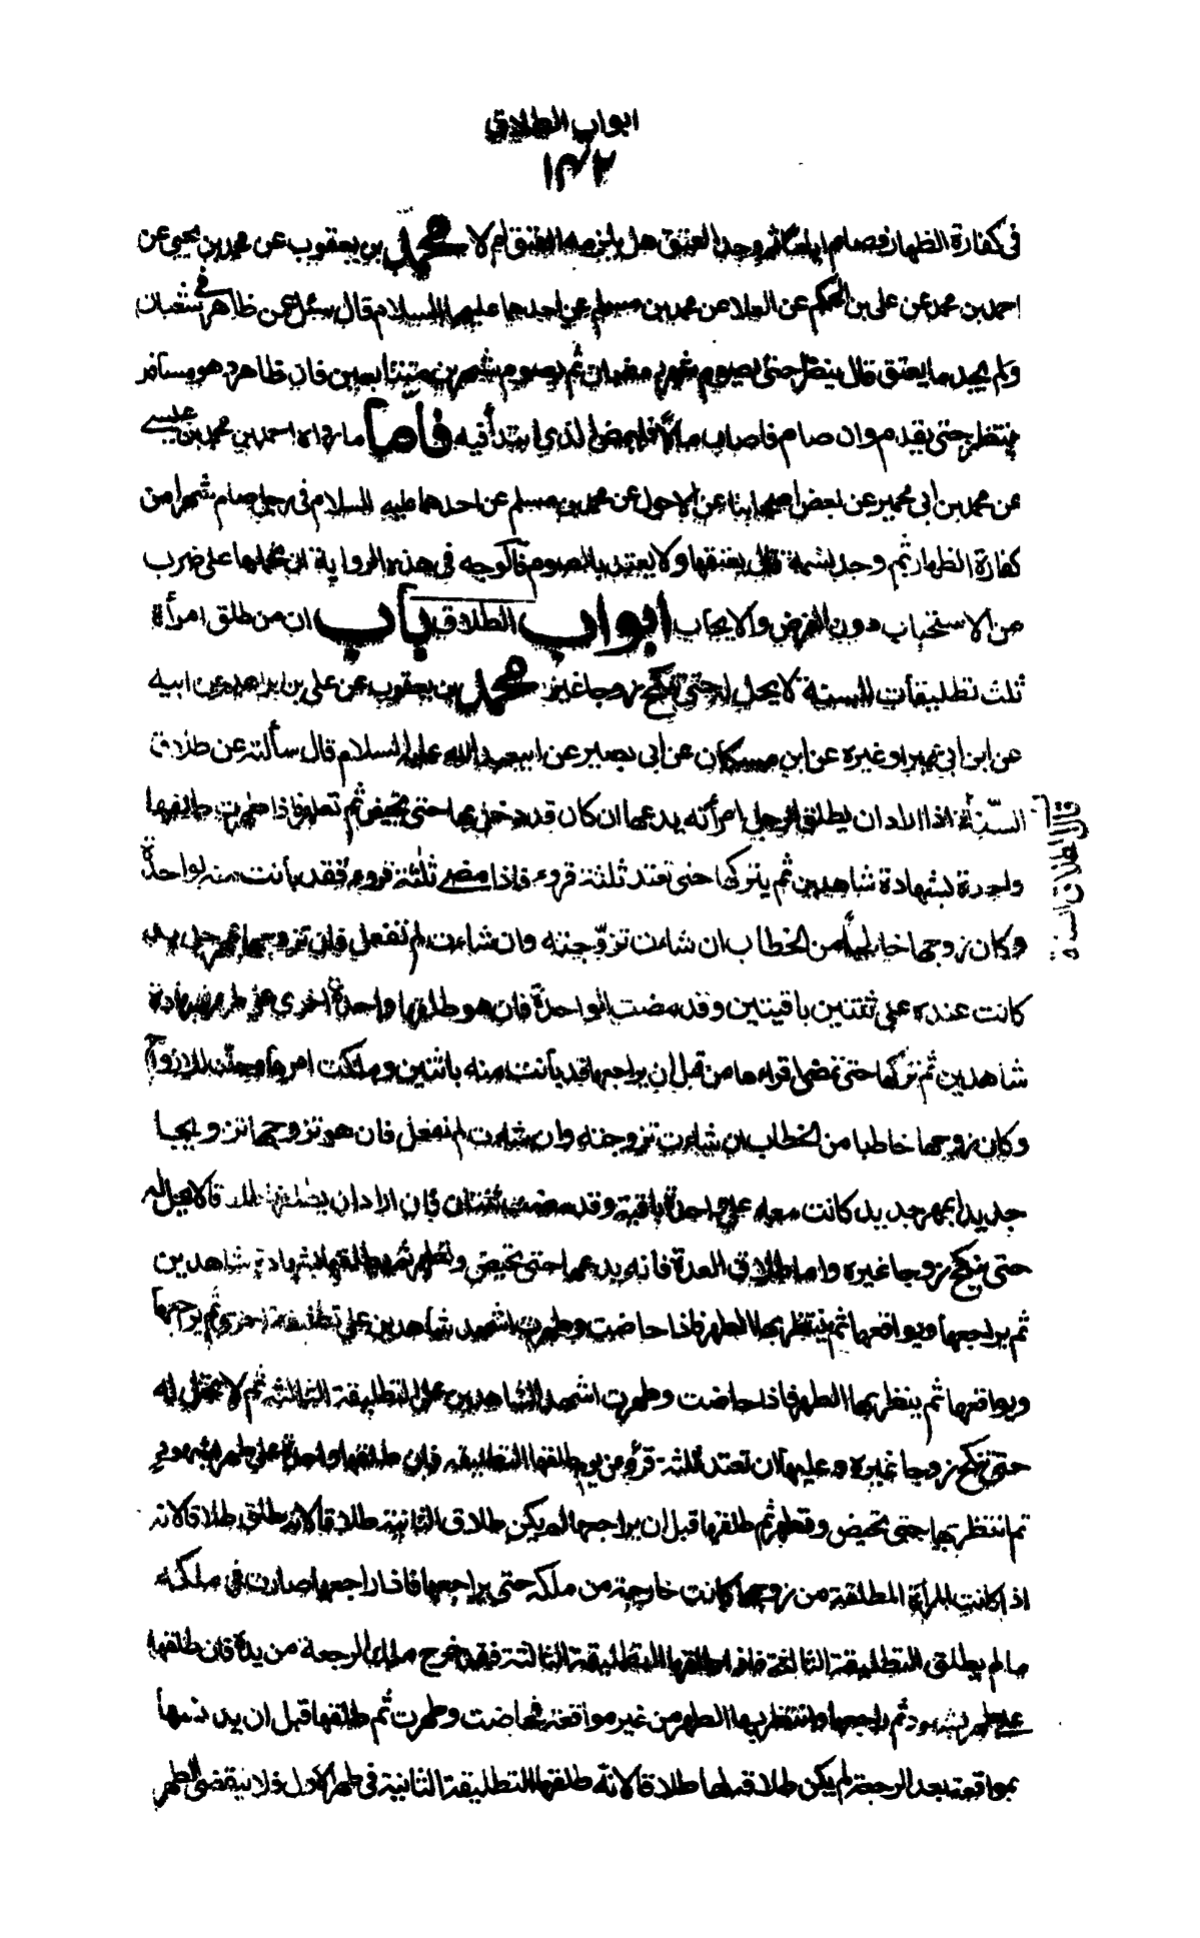 ابواب الطلاق
١٣٢
فى كفارة الظهار فصام ثم وجد العتق هل يلزمه العتق ام لا محمد بن يعقوب عن محمد بن يحيى عن
احمد بن محمد عن على بن الحكم عن العلا عن محمد بن مسلم عن احدهما عليهما السلام قال سئل عمن ظاهر فى شعبان
ولم يجد ما يعتق قال ينتظر حتى يصوم شهر رمضان ثم يصوم شهرين متتابعين فان ظاهر وهو مسافر
ينتظر حتى يقدم وان صام فاصاب مالا فليمض الذى ابتدأ فيه فأما ما رواه احمد بن محمد بن عيسى
عن محمد بن ابى عمير عن بعض اصحابنا عن الاحول عن محمد بن مسلم عن احدهما عليه السلام فى رجل صام شهرا من
كفارة الظهار ثم وجد نسمة قال يعتقها ولا يعتد بالصوم فالوجه فى هذه الرواية ان نحملها على ضرب
من الاستحباب دون الفرض والايجاب ابواب الطلاق باب ان من طلق امرأة
ثلث تطليقات للسنة لا يحل له حتى تنكح زوجا غيره محمد بن يعقوب عن على بن ابراهيم عن ابيه
عن ابن ابى عمير او غيره عن ابن مسكان عن ابى بصير عن ابيعبد الله عليه السلام قال سألته عن طلاق
السنة اذا اراد ان يطلق الرجل امرأته يدعها ان كان قد دخل بها حتى تحيض ثم تطهر فاذا طهرت طلقها
واحدة بشهادة شاهدين ثم يتركها حتى تعتد ثلثة قروء فاذا مضى ثلثة قروء فقد بانت منه بواحدة
وكان زوجها خاطبا من الخطاب ان شاءت تزوجته وان شاءت لم تفعل فان تزوجها بمهر جديد
كانت عنده على ثنتين باقيتين وقد مضت الواحدة فان هو طلقها واحدة اخرى على طهر بشهادة
شاهدين ثم تركها حتى تمضى اقراءها من قبل ان يراجعها قد بانت منه باثنتين وملكت امرها وحلت للازواج
وكان زوجها خاطبا من الخطاب ان شاءت تزوجته وان شاءت لم تفعل فان هو تزوجها تزويجا
جديدا بمهر جديد كانت معه على واحدة باقية وقد مضت ثنتان فان اراد ان يطلقها طلاقا لا يحل له
حتى ينكح زوجا غيره واما طلاق العدة فانه يدعها حتى تحيض وتطهر ثم يطلقها بشهادة شاهدين
ثم يراجعها ويواقعها ثم ينتظر بها الطهر فاذا حاضت وطهرت اشهد شاهدين على تطليقة اخرى ثم يراجعها
ويواقعها ثم ينتظر بها الطهر فاذا حاضت وطهرت اشهد الشاهدين على التطليقة الثالثة ثم لا تحل له
حتى تنكح زوجا غيره وعليها ان تعتد ثلثة قروء من يوم طلقها التطليقة فان طلقها واحدة على طهر بشهود
ثم انتظر بها حتى تحيض وتطهر ثم طلقها قبل ان يراجعها لم يكن طلاق الثانية طلاقا لانه طلق طلاقا لانه
اذا كانت المرأة المطلقة من زوجها كانت خارجة من ملكه حتى يراجعها فاذا راجعها صارت فى ملكه
ما لم يطلق التطليقة الثالثة فاذا طلقها التطليقة الثالثة فقد خرج ملك الرجعة من يده فان طلقها
على طهر بشهود ثم راجعها وانتظر بها الطهر من غير مواقعة فحاضت وطهرت ثم طلقها قبل ان يدنسها
بمواقعة بعد الرجعة لم يكن طلاقه لها طلاقا لانه طلقها التطليقة الثانية فى طهر الاول فلا ينقضى الطهر
قال الطلاق السنة